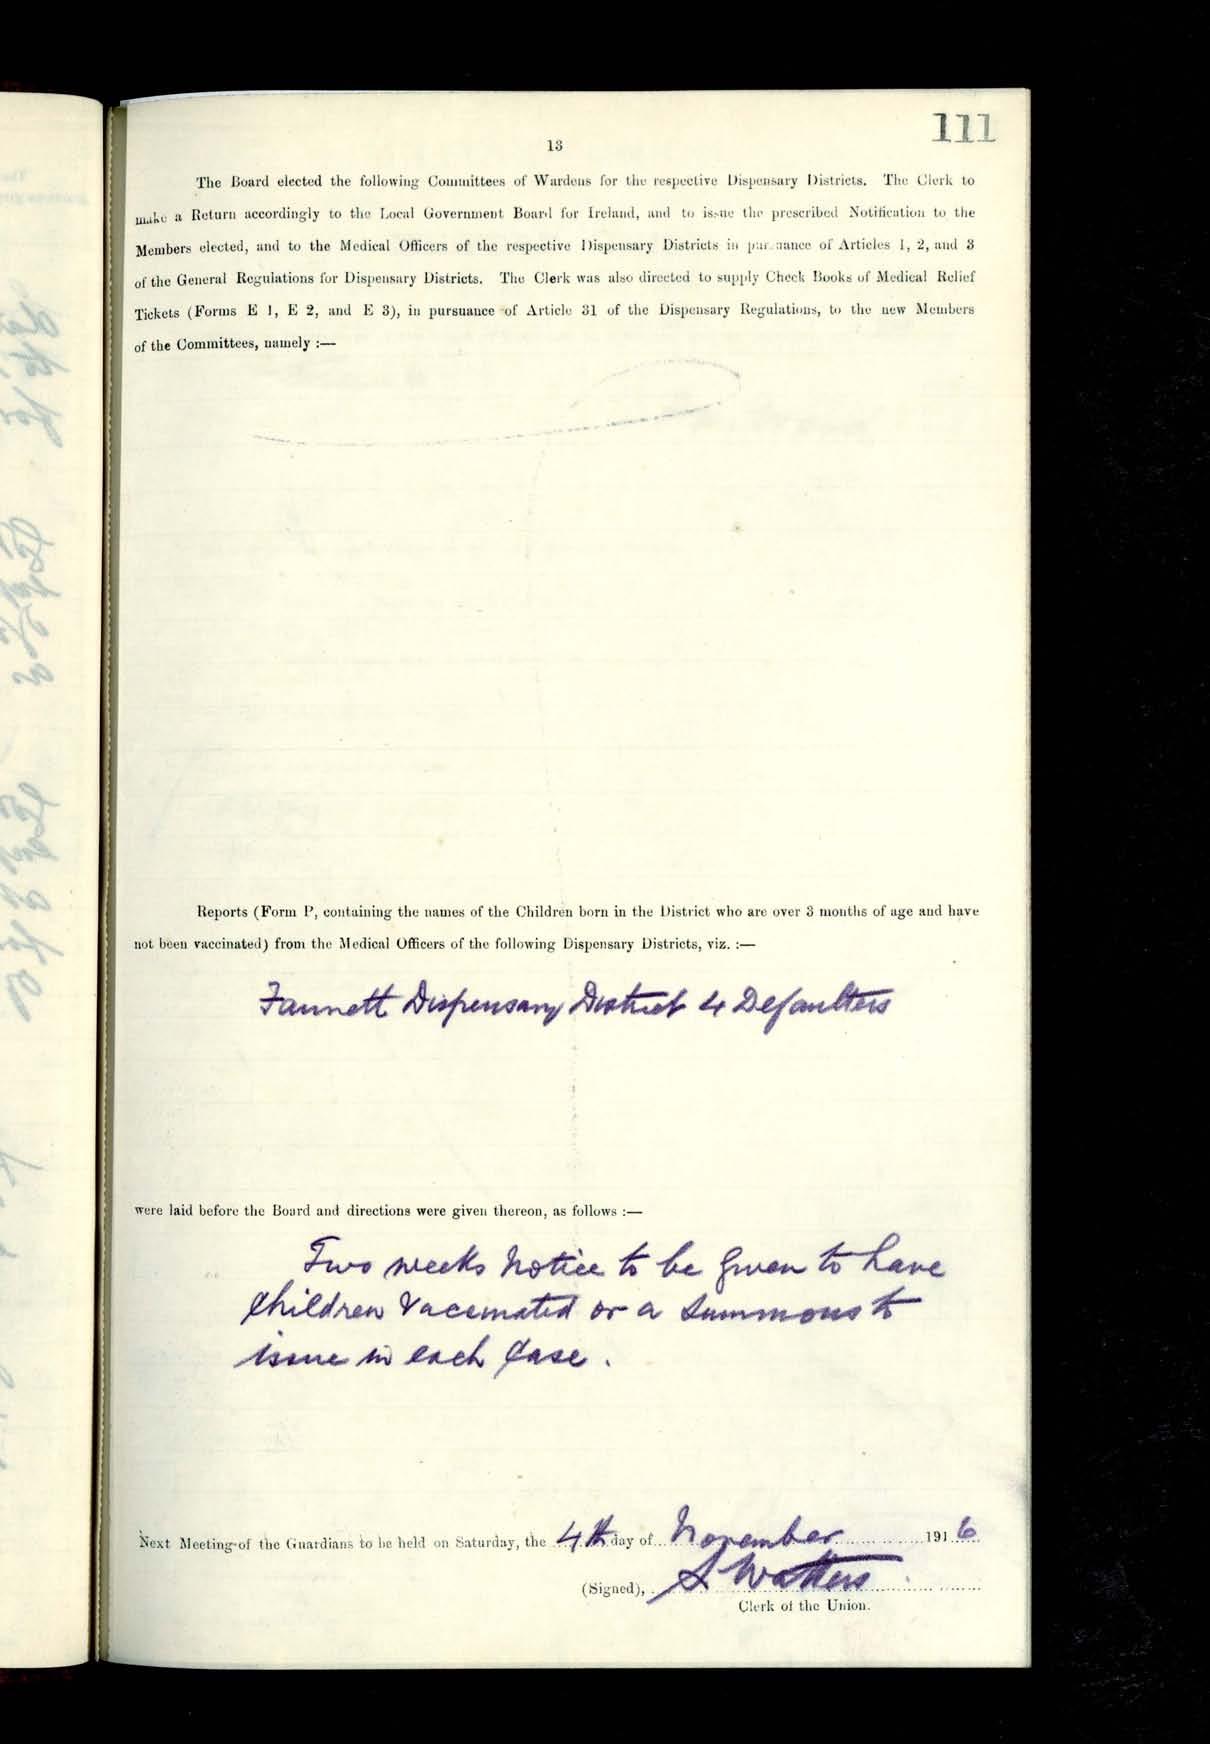 111
13
The Board elected the following Committees of Wardens for the respective Dispensary Districts. The Clerk to
make a Return accordingly to the Local Government Board for Ireland, and to issue the prescribed Notification to the
Members elected, and to the Medical Officers of the respective Dispensary Districts in pursuance of Articles 1, 2, and 3
of the General Regulations for Dispensary Districts. The Clerk was also directed to supply Check Books of Medical Relief
Tickets (Forms E 1, E 2, and E 3), in pursuance of Article 31 of the Dispensary Regulations, to the new Members
of the Committees, namely :—
Reports (Form P, containing the names of the Children born in the District who are over 3 months of age and have
not been vaccinated) from the Medical Officers of the following Dispensary Districts, viz. :—
Fannett Dispensary District 4 Defaulters
were laid before the Board and directions were given thereon, as follows :—
Two weeks Notice to be given to have
Children Vaccinated or a Summons to
issue in each Case.
Next Meeting of the Guardians to be held on Saturday, the 4th day of November 1916
(Signed), S Watters
Clerk of the Union.